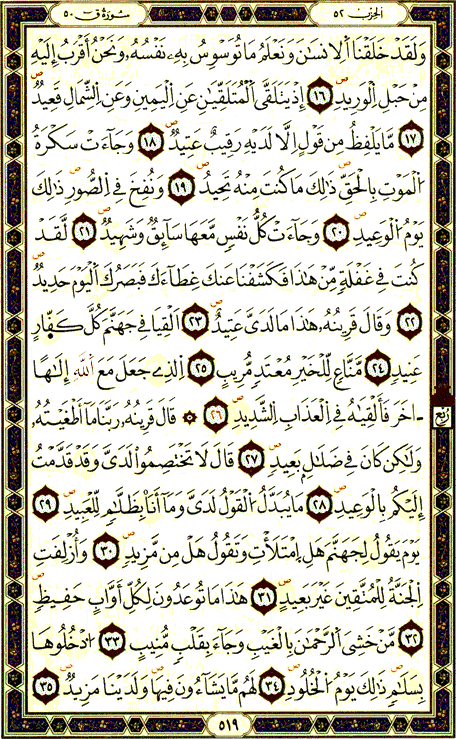 الحزب ٥٢
سورة ق ٥٠
وَلَقَدْ خَلَقْنَا اَ۬لِانسَٰنَ وَنَعْلَمُ مَا تُوَسْوِسُ بِهِۦ نَفْسُهُۥ وَنَحْنُ أَقْرَبُ إِلَيْهِ
مِنْ حَبْلِ اِ۬لْوَرِيدِ ١٦ إِذْ يَتَلَقَّى اَ۬لْمُتَلَقِّيَٰنِ عَنِ اِ۬لْيَمِينِ وَعَنِ اِ۬لشِّمَالِ قَعِيدٞ
١٧ مَّا يَلْفِظُ مِن قَوْلٍ اِلَّا لَدَيْهِ رَقِيبٌ عَتِيدٞ ١٨ وَجَآءَتْ سَكْرَةُ
اُ۬لْمَوْتِ بِالْحَقِّ ذَٰلِكَ مَا كُنتَ مِنْهُ تَحِيدُ ١٩ وَنُفِخَ فِے اِ۬لصُّورِ ذَٰلِكَ
يَوْمُ اُ۬لْوَعِيدِ ٢٠ وَجَآءَتْ كُلُّ نَفْسٖ مَّعَهَا سَآئِقٞ وَشَهِيدٞ ٢١ لَّقَدْ
كُنتَ فِے غَفْلَةٖ مِّنْ هَٰذَا فَكَشَفْنَا عَنكَ غِطَآءَكَ فَبَصَرُكَ اَ۬لْيَوْمَ حَدِيدٞ
٢٢ وَقَالَ قَرِينُهُۥ هَٰذَا مَا لَدَىَّ عَتِيدٌ ٢٣ اَلْقِيَا فِے جَهَنَّمَ كُلَّ كَفّ۪ارٍ
عَنِيدٖ ٢٤ مَّنَّاعٖ لِّلْخَيْرِ مُعْتَدٖ مُّرِيبٍ ٢٥ اِ۬لذِے جَعَلَ مَعَ اَ۬للَّهِ إِلَٰهاً
اٰخَرَ فَأَلْقِيَٰهُ فِے اِ۬لْعَذَابِ اِ۬لشَّدِيدِ ٢٦ ۞ قَالَ قَرِينُهُۥ رَبَّنَا مَآ أَطْغَيْتُهُۥ
وَلَٰكِن كَانَ فِے ضَلَٰلِۢ بَعِيدٖ ٢٧ قَالَ لَا تَخْتَصِمُواْ لَدَىَّ وَقَدْ قَدَّمْتُ
إِلَيْكُم بِالْوَعِيدِ ٢٨ مَا يُبَدَّلُ اُ۬لْقَوْلُ لَدَىَّ وَمَآ أَنَا۠ بِظَلَّٰمٖ لِّلْعَبِيدِ ٢٩
يَوْمَ يَقُولُ لِجَهَنَّمَ هَلِ اِ۪مْتَلَأْتِ وَتَقُولُ هَلْ مِن مَّزِيدٖ ٣٠ وَأُزْلِفَتِ
اِ۬لْجَنَّةُ لِلْمُتَّقِينَ غَيْرَ بَعِيدٍ ٣١ هَٰذَا مَا تُوعَدُونَ لِكُلِّ أَوَّابٍ حَفِيظٖ
٣٢ مَّنْ خَشِىَ اَ۬لرَّحْمَٰنَ بِالْغَيْبِ وَجَآءَ بِقَلْبٖ مُّنِيبٍ ٣٣ اُ۟دْخُلُوهَا
بِسَلَٰمٖ ذَٰلِكَ يَوْمُ اُ۬لْخُلُودِ ٣٤ لَهُم مَّا يَشَآءُونَ فِيهَا وَلَدَيْنَا مَزِيدٞ ٣٥
ربع
٥١٩